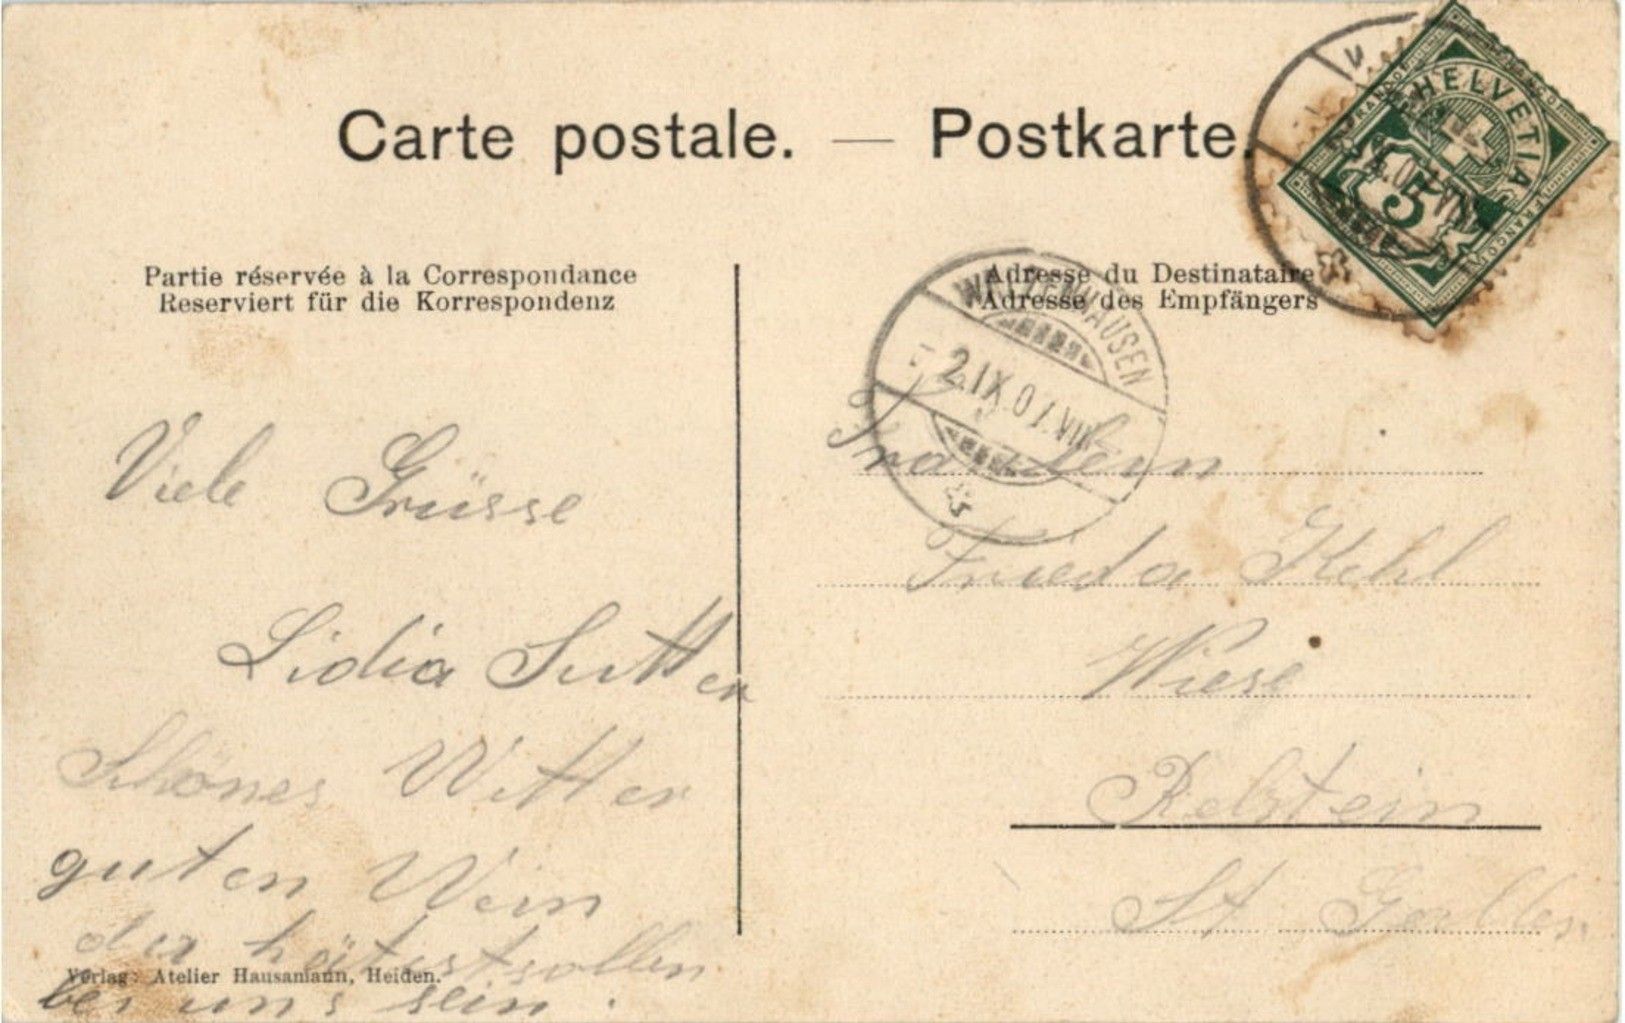 Carte postale. — Postkarte.
Partie réservée à la Correspondance
Reserviert für die Korrespondenz
Adresse du Destinataire
Adresse des Empfängers
HELVETIA
FRANCO
5
HAUSEN
2.IX.07.VIII
Viele Grüsse
Lidia Sutter
Schönes Witter
guten Wein
du hätest sollen
bei uns sein.
Verlag: Atelier Hausamann, Heiden.
Fraulein
Frieda Kehl
Wiese
Rebstein
St Gallen.